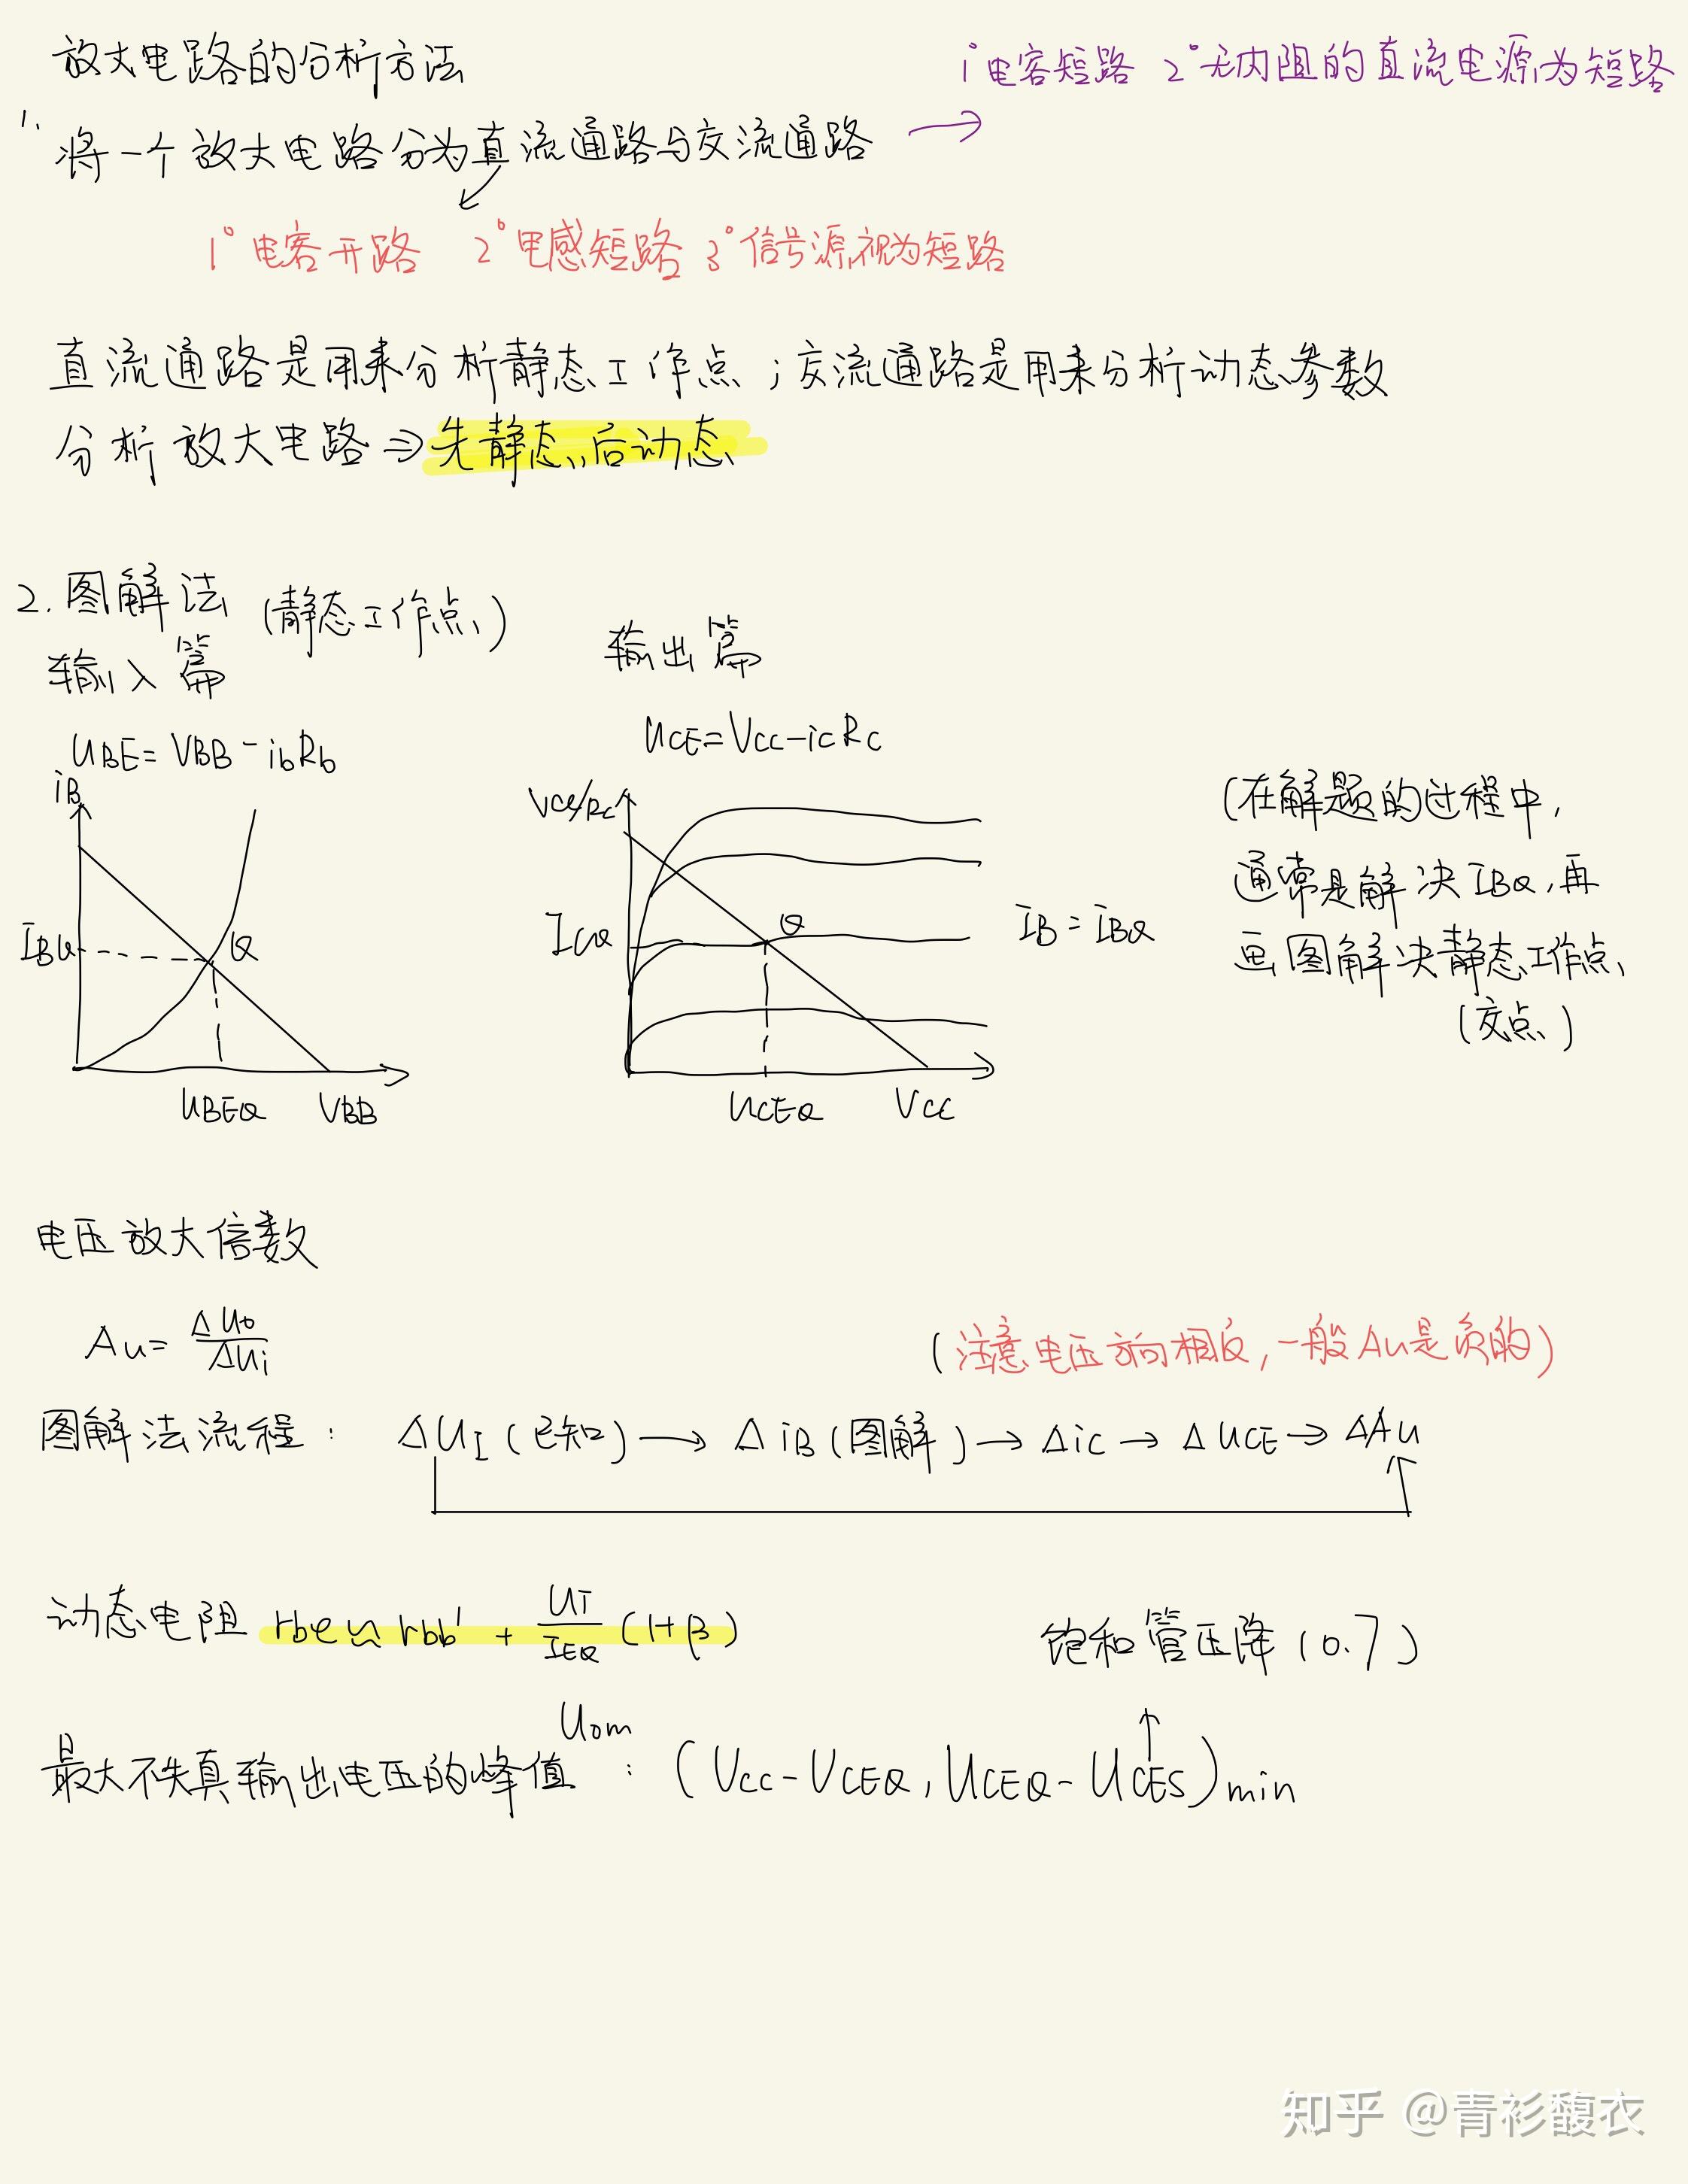 放大电路的分析方法
1° 电容短路 2° 无内阻的直流电源为短路
1. 将一个放大电路分为直流通路与交流通路 →
1° 电容开路 2° 电感短路 3° 信号源视为短路
直流通路是用来分析静态工作点；交流通路是用来分析动态参数
分析放大电路⇒先静态，后动态
2. 图解法 (静态工作点)
输入篇
输出篇
UBE=VBB-ibRb
UCE=VCC-icRc
iB
IBQ
Q
UBEQ VBB
VCC/RC
ICQ
Q
IB=IBQ
UCEQ VCC
(在解题的过程中,
通常是解决IBQ,再
画图解决静态工作点
(交点)
电压放大倍数
Au=ΔUo/ΔUi
(注意电压方向相反,一般Au是负的)
图解法流程: ΔUI(已知)→ΔiB(图解)→Δic→ΔUCE→ΔAu
动态电阻 rbe≌rbb'+UT/IEQ(1+β)
饱和管压降(0.7)
最大不失真输出电压的峰值Uom: (Vcc-VCEQ,UCEQ-UCES)min
知乎 @青衫馥衣